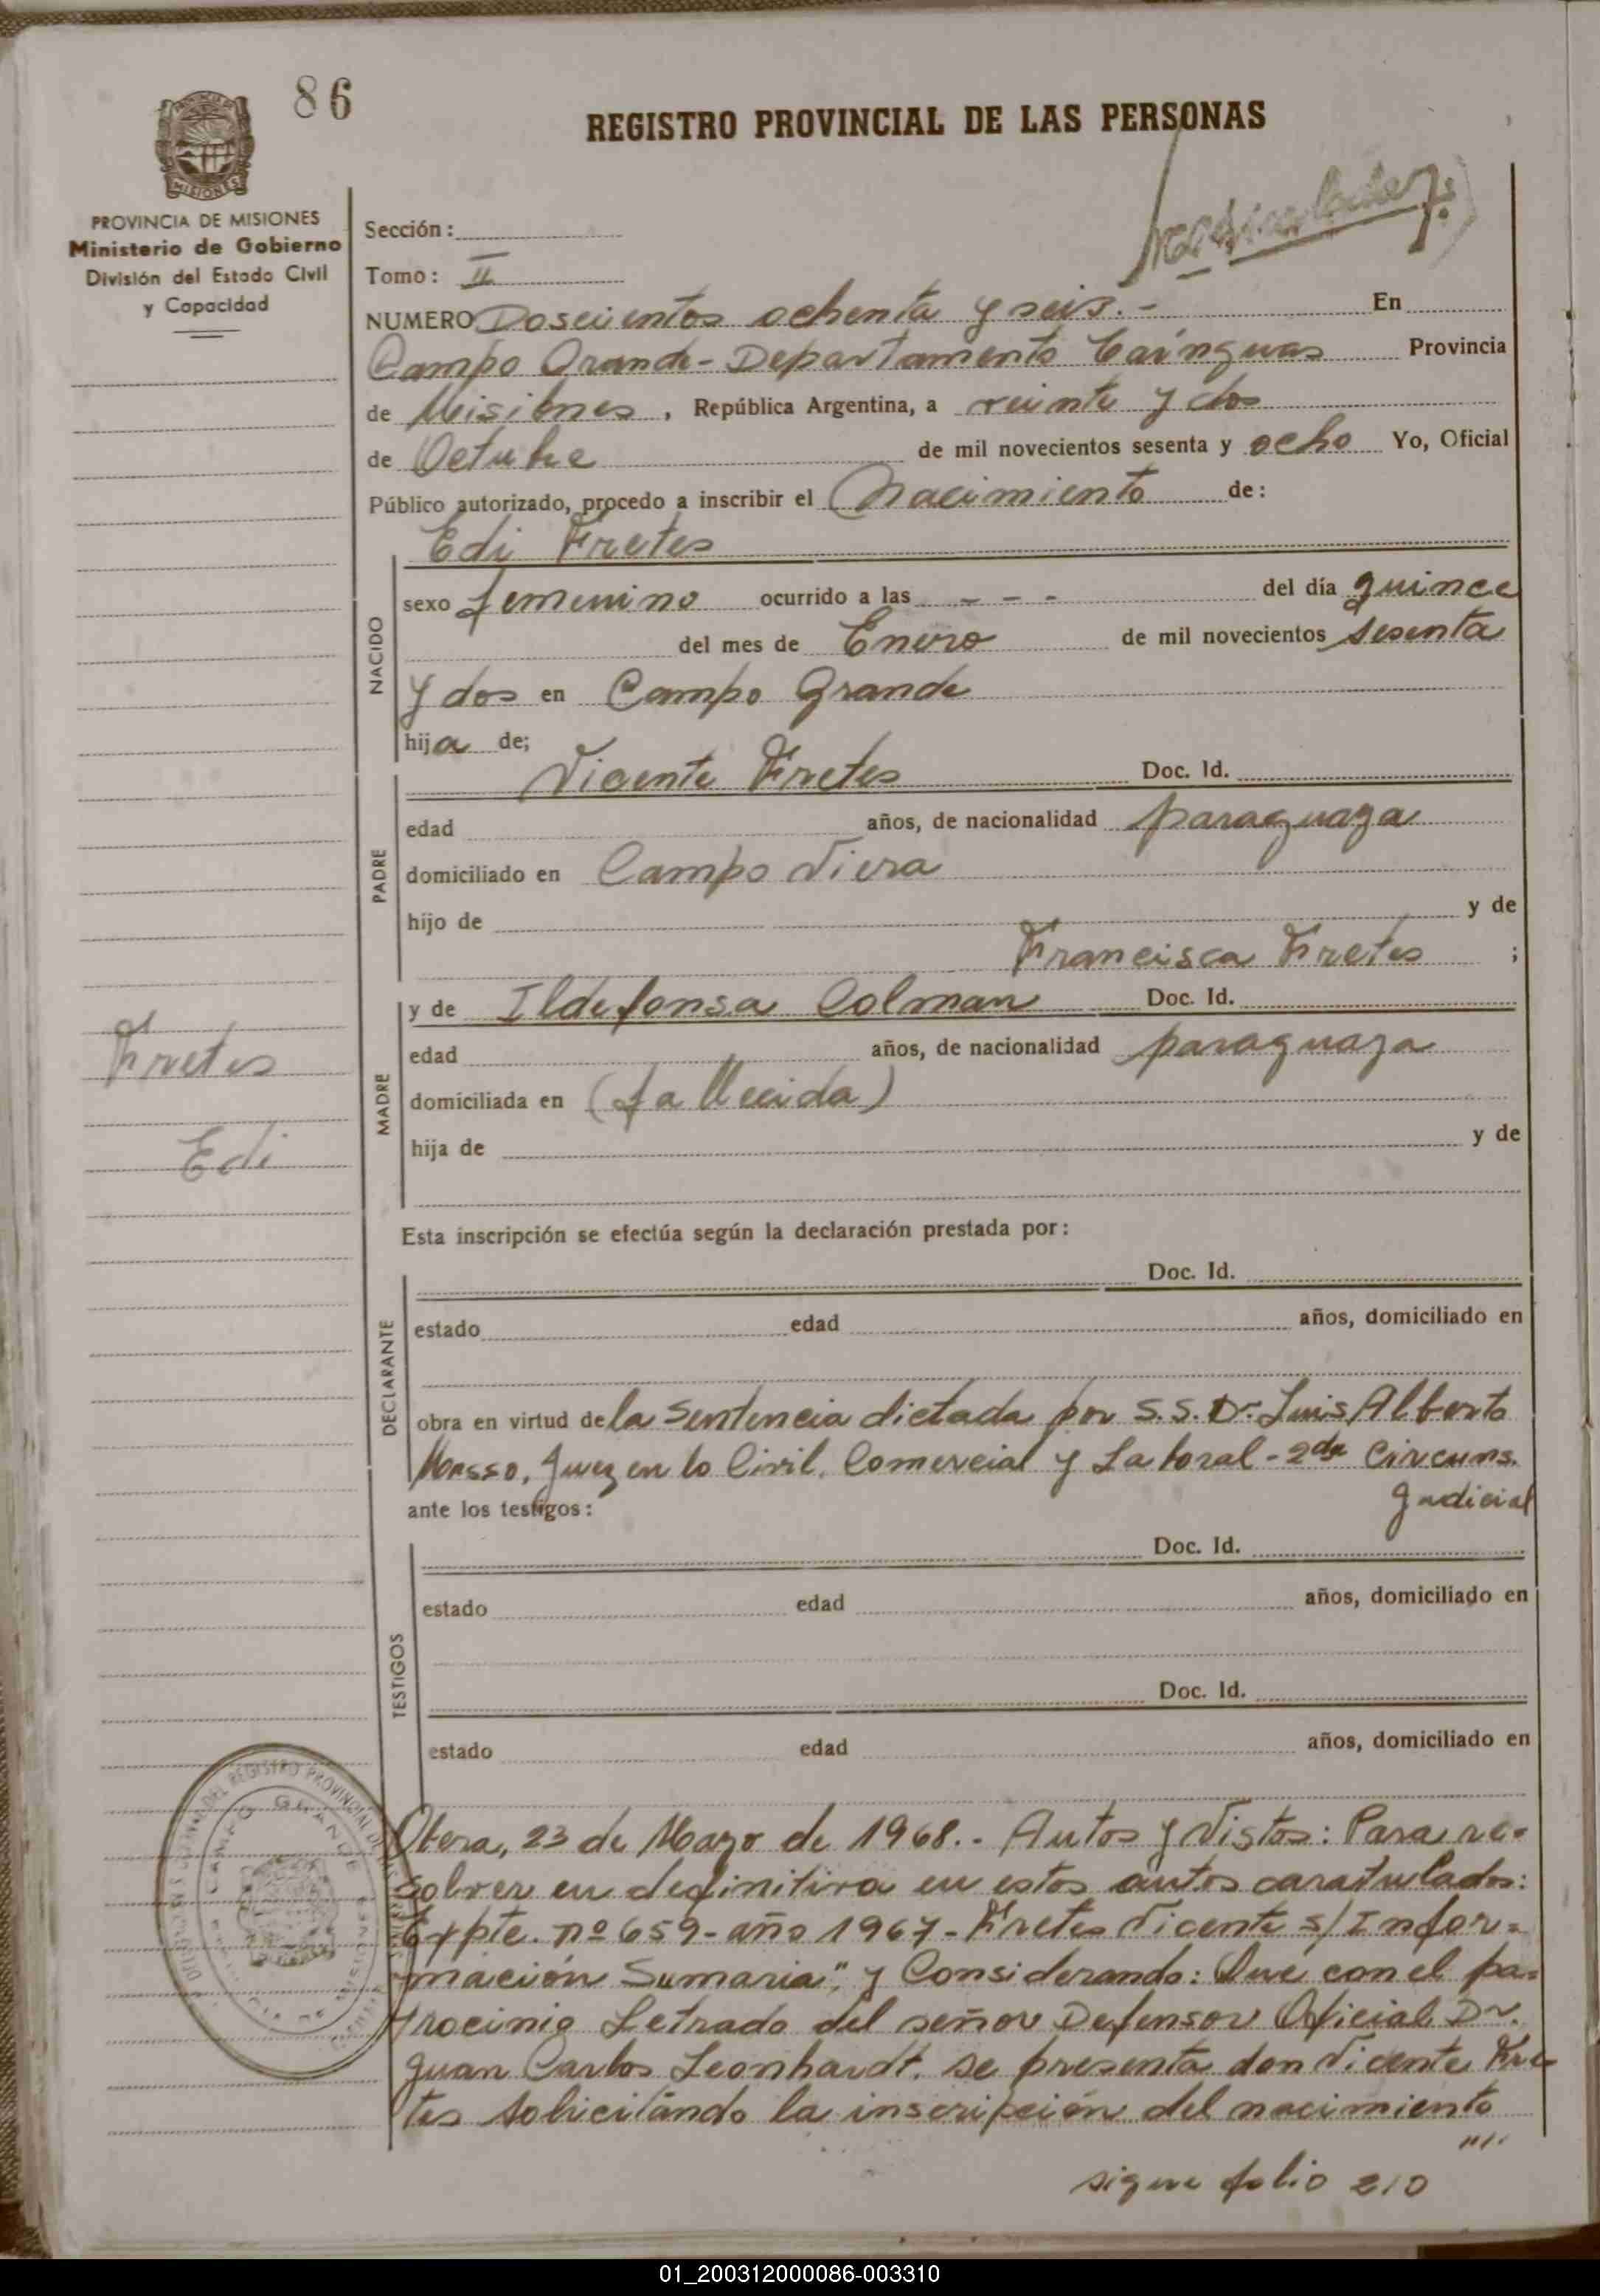 86
REGISTRO PROVINCIAL DE LAS PERSONAS
MISIONES
PROVINCIA DE MISIONES
Ministerio de Gobierno
División del Estado Civil
y Capacidad
Sección:
Tomo: II
NUMERO Doscientos ochenta y seis.- En
Campo Grande - Departamento Caínguas Provincia
de Misiones, República Argentina, a veinte y dos
de Octubre de mil novecientos sesenta y ocho Yo, Oficial
Público autorizado, procedo a inscribir el Nacimiento de:
Edi Fretes
NACIDO
sexo femenino ocurrido a las - - - del día quince
del mes de Enero de mil novecientos sesenta
y dos en Campo Grande
hija de;
PADRE
Vicente Fretes Doc. Id.
edad años, de nacionalidad paraguaya
domiciliado en Campo Viera
hijo de y de
Francisca Fretes ;
MADRE
y de Ildefonsa Colman Doc. Id.
edad años, de nacionalidad paraguaya
domiciliada en (fallecida)
hija de y de
Fretes
Edi
Esta inscripción se efectúa según la declaración prestada por:
DECLARANTE
Doc. Id.
estado edad años, domiciliado en
obra en virtud de la Sentencia dictada por S.S. Dr. Luis Alberto
Masso, Juez en lo Civil, Comercial y Laboral - 2da Circuns.
Judicial
ante los testigos:
TESTIGOS
Doc. Id.
estado edad años, domiciliado en
Doc. Id.
estado edad años, domiciliado en
Obera, 23 de Mayo de 1968.- Autos y Vistos: Para re-
solver en definitiva en estos autos caratulados:
Expte. nº 659- año 1967- Fretes Vicente s/ Infor=
mación Sumaria", y Considerando: Que con el pa=
trocinio Letrado del señor Defensor Oficial Dr.
Juan Carlos Leonhardt, se presenta don Vicente Fre-
tes solicitando la inscripción del nacimiento
"//.
sigue folio 210
CAMPO GRANDE
01_200312000086-003310